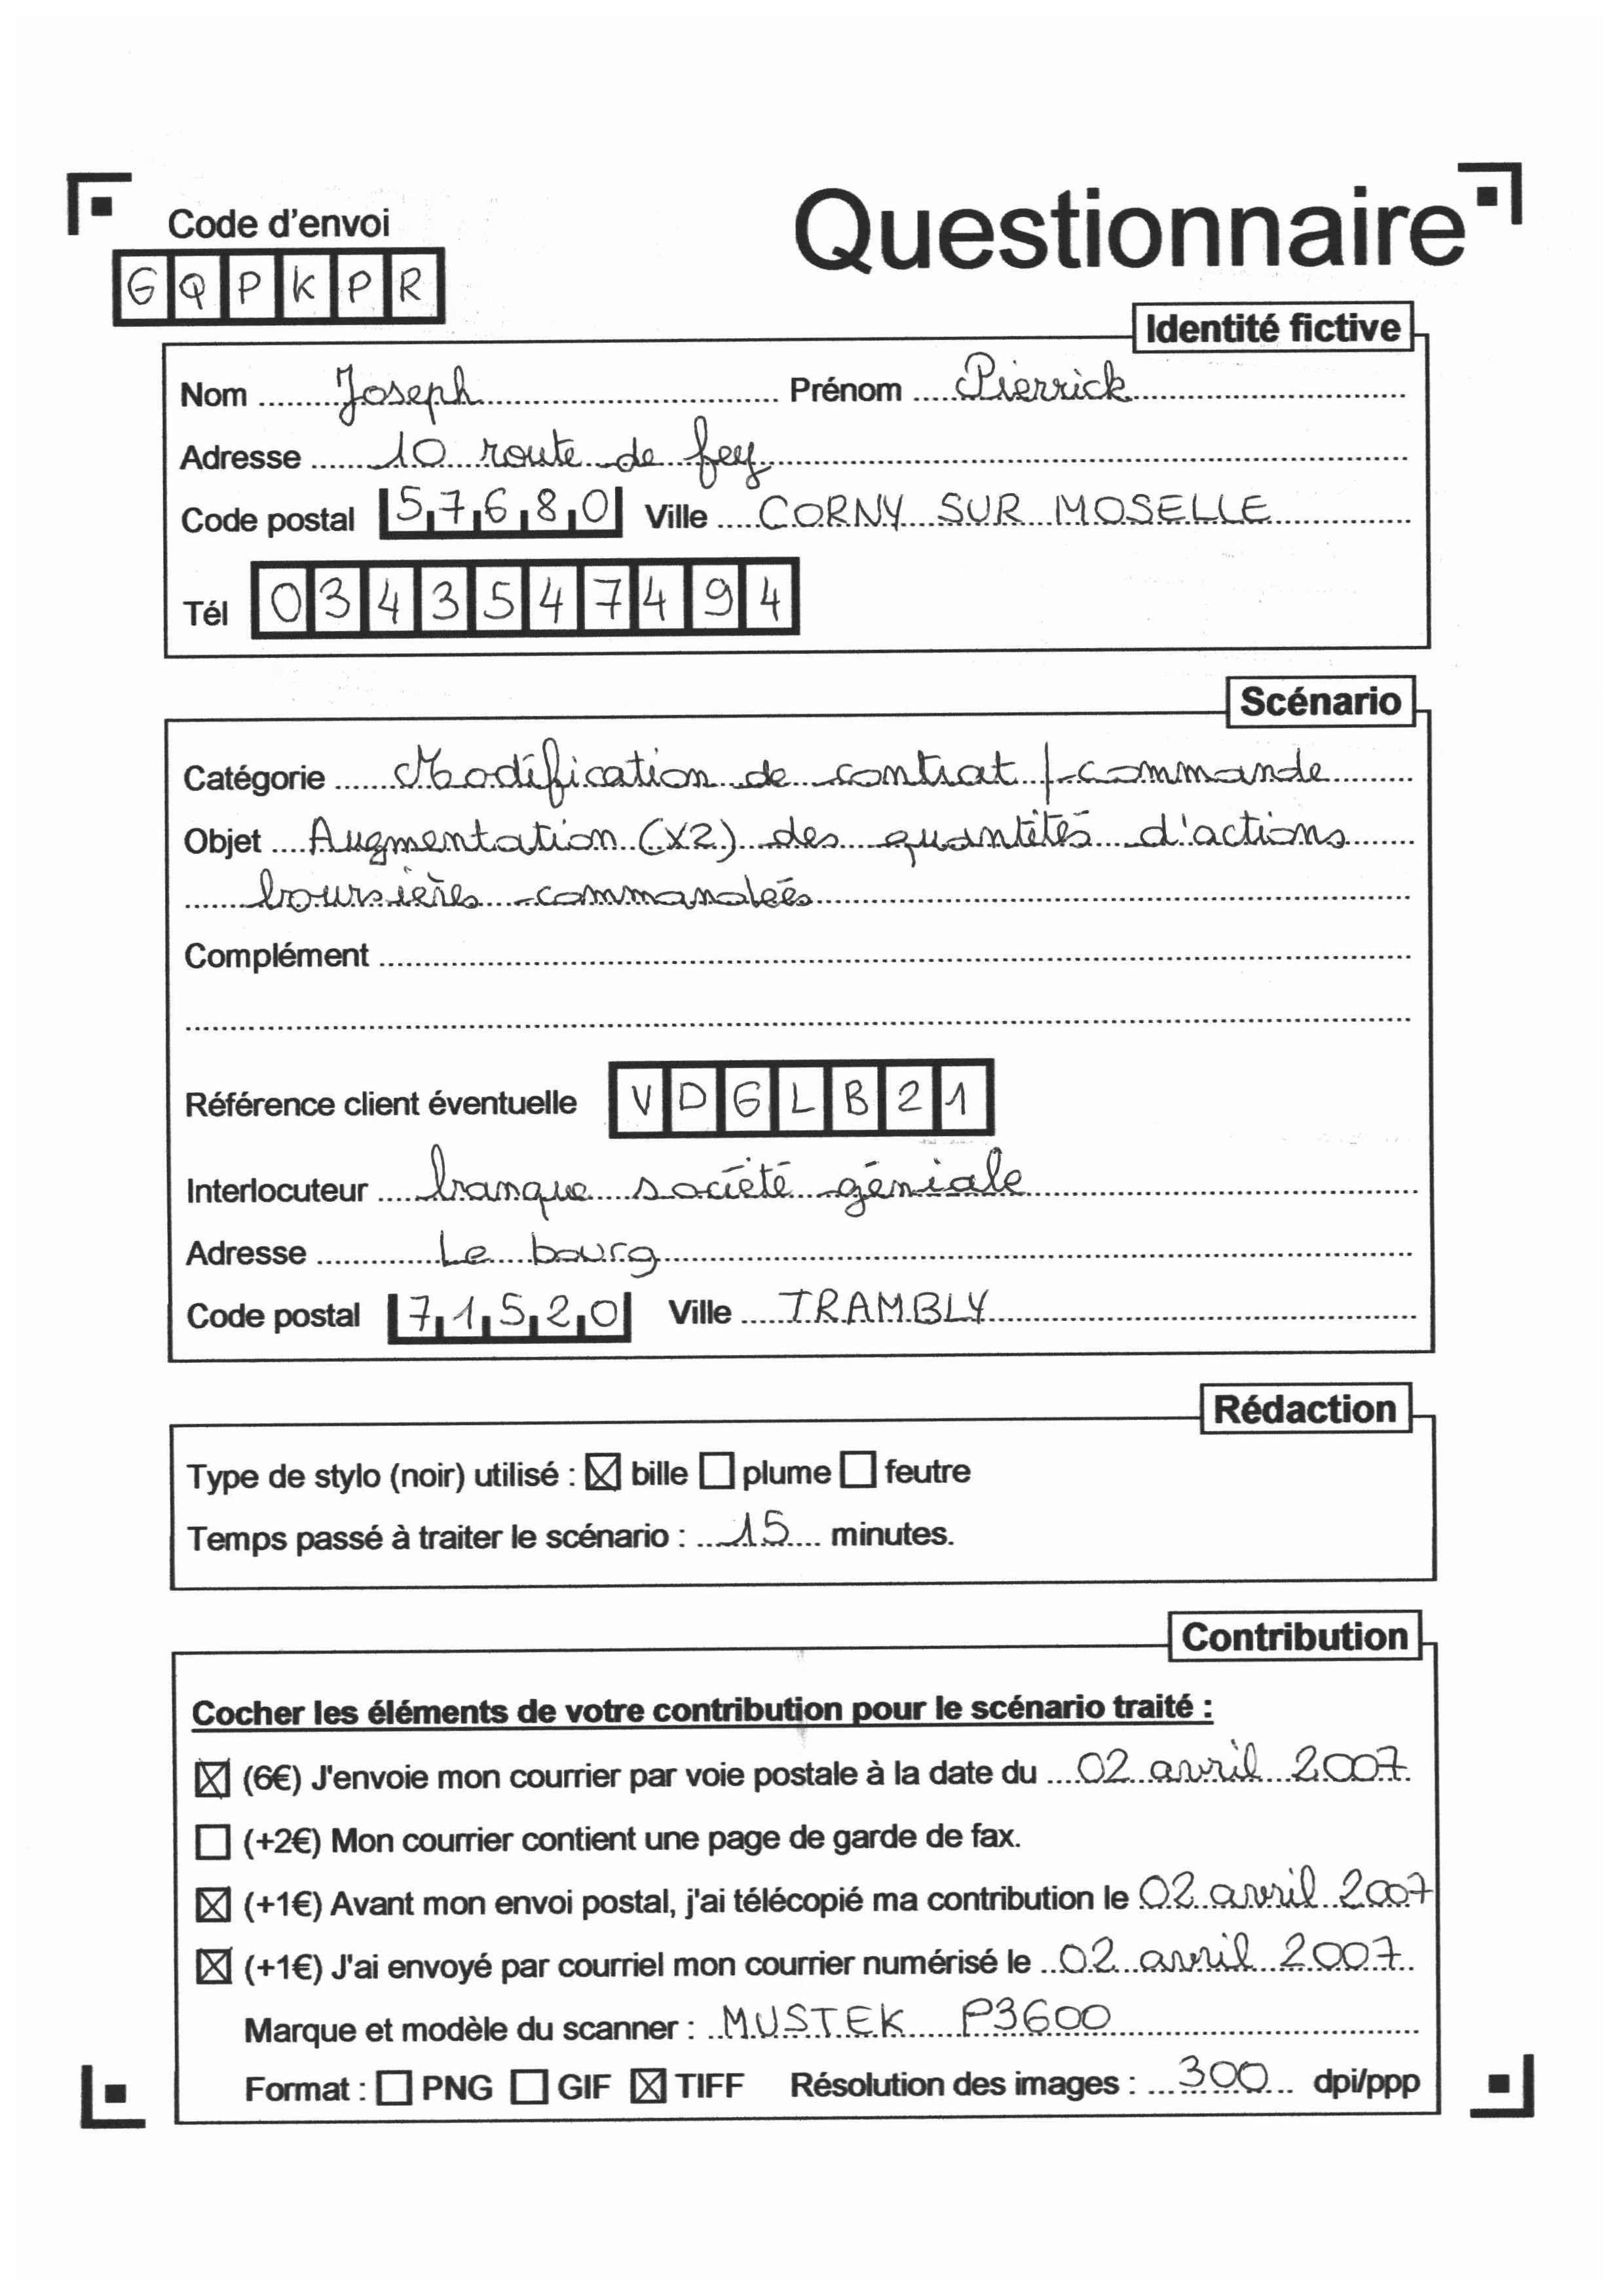 Code d'envoi
Questionnaire
GQPKPR
Identité fictive
Nom Joseph Prénom Pierrick
Adresse 10 route de fey
Code postal 57680 Ville CORNY SUR MOSELLE
Tél 0343547494
Scénario
Catégorie Modification de contrat / commande
Objet Augmentation (x2) des quantités d'actions
boursières commandées
Complément
Référence client éventuelle VDGLB21
Interlocuteur banque société géniale
Adresse Le bourg
Code postal 71520 Ville TRAMBLY
Rédaction
Type de stylo (noir) utilisé : ☒ bille ☐ plume ☐ feutre
Temps passé à traiter le scénario : 15 minutes.
Contribution
Cocher les éléments de votre contribution pour le scénario traité :
☒ (6€) J'envoie mon courrier par voie postale à la date du 02 avril 2007
☐ (+2€) Mon courrier contient une page de garde de fax.
☒ (+1€) Avant mon envoi postal, j'ai télécopié ma contribution le 02 avril 2007
☒ (+1€) J'ai envoyé par courriel mon courrier numérisé le 02 avril 2007
Marque et modèle du scanner : MUSTEK P3600
Format : ☐ PNG ☐ GIF ☒ TIFF Résolution des images : 300 dpi/ppp